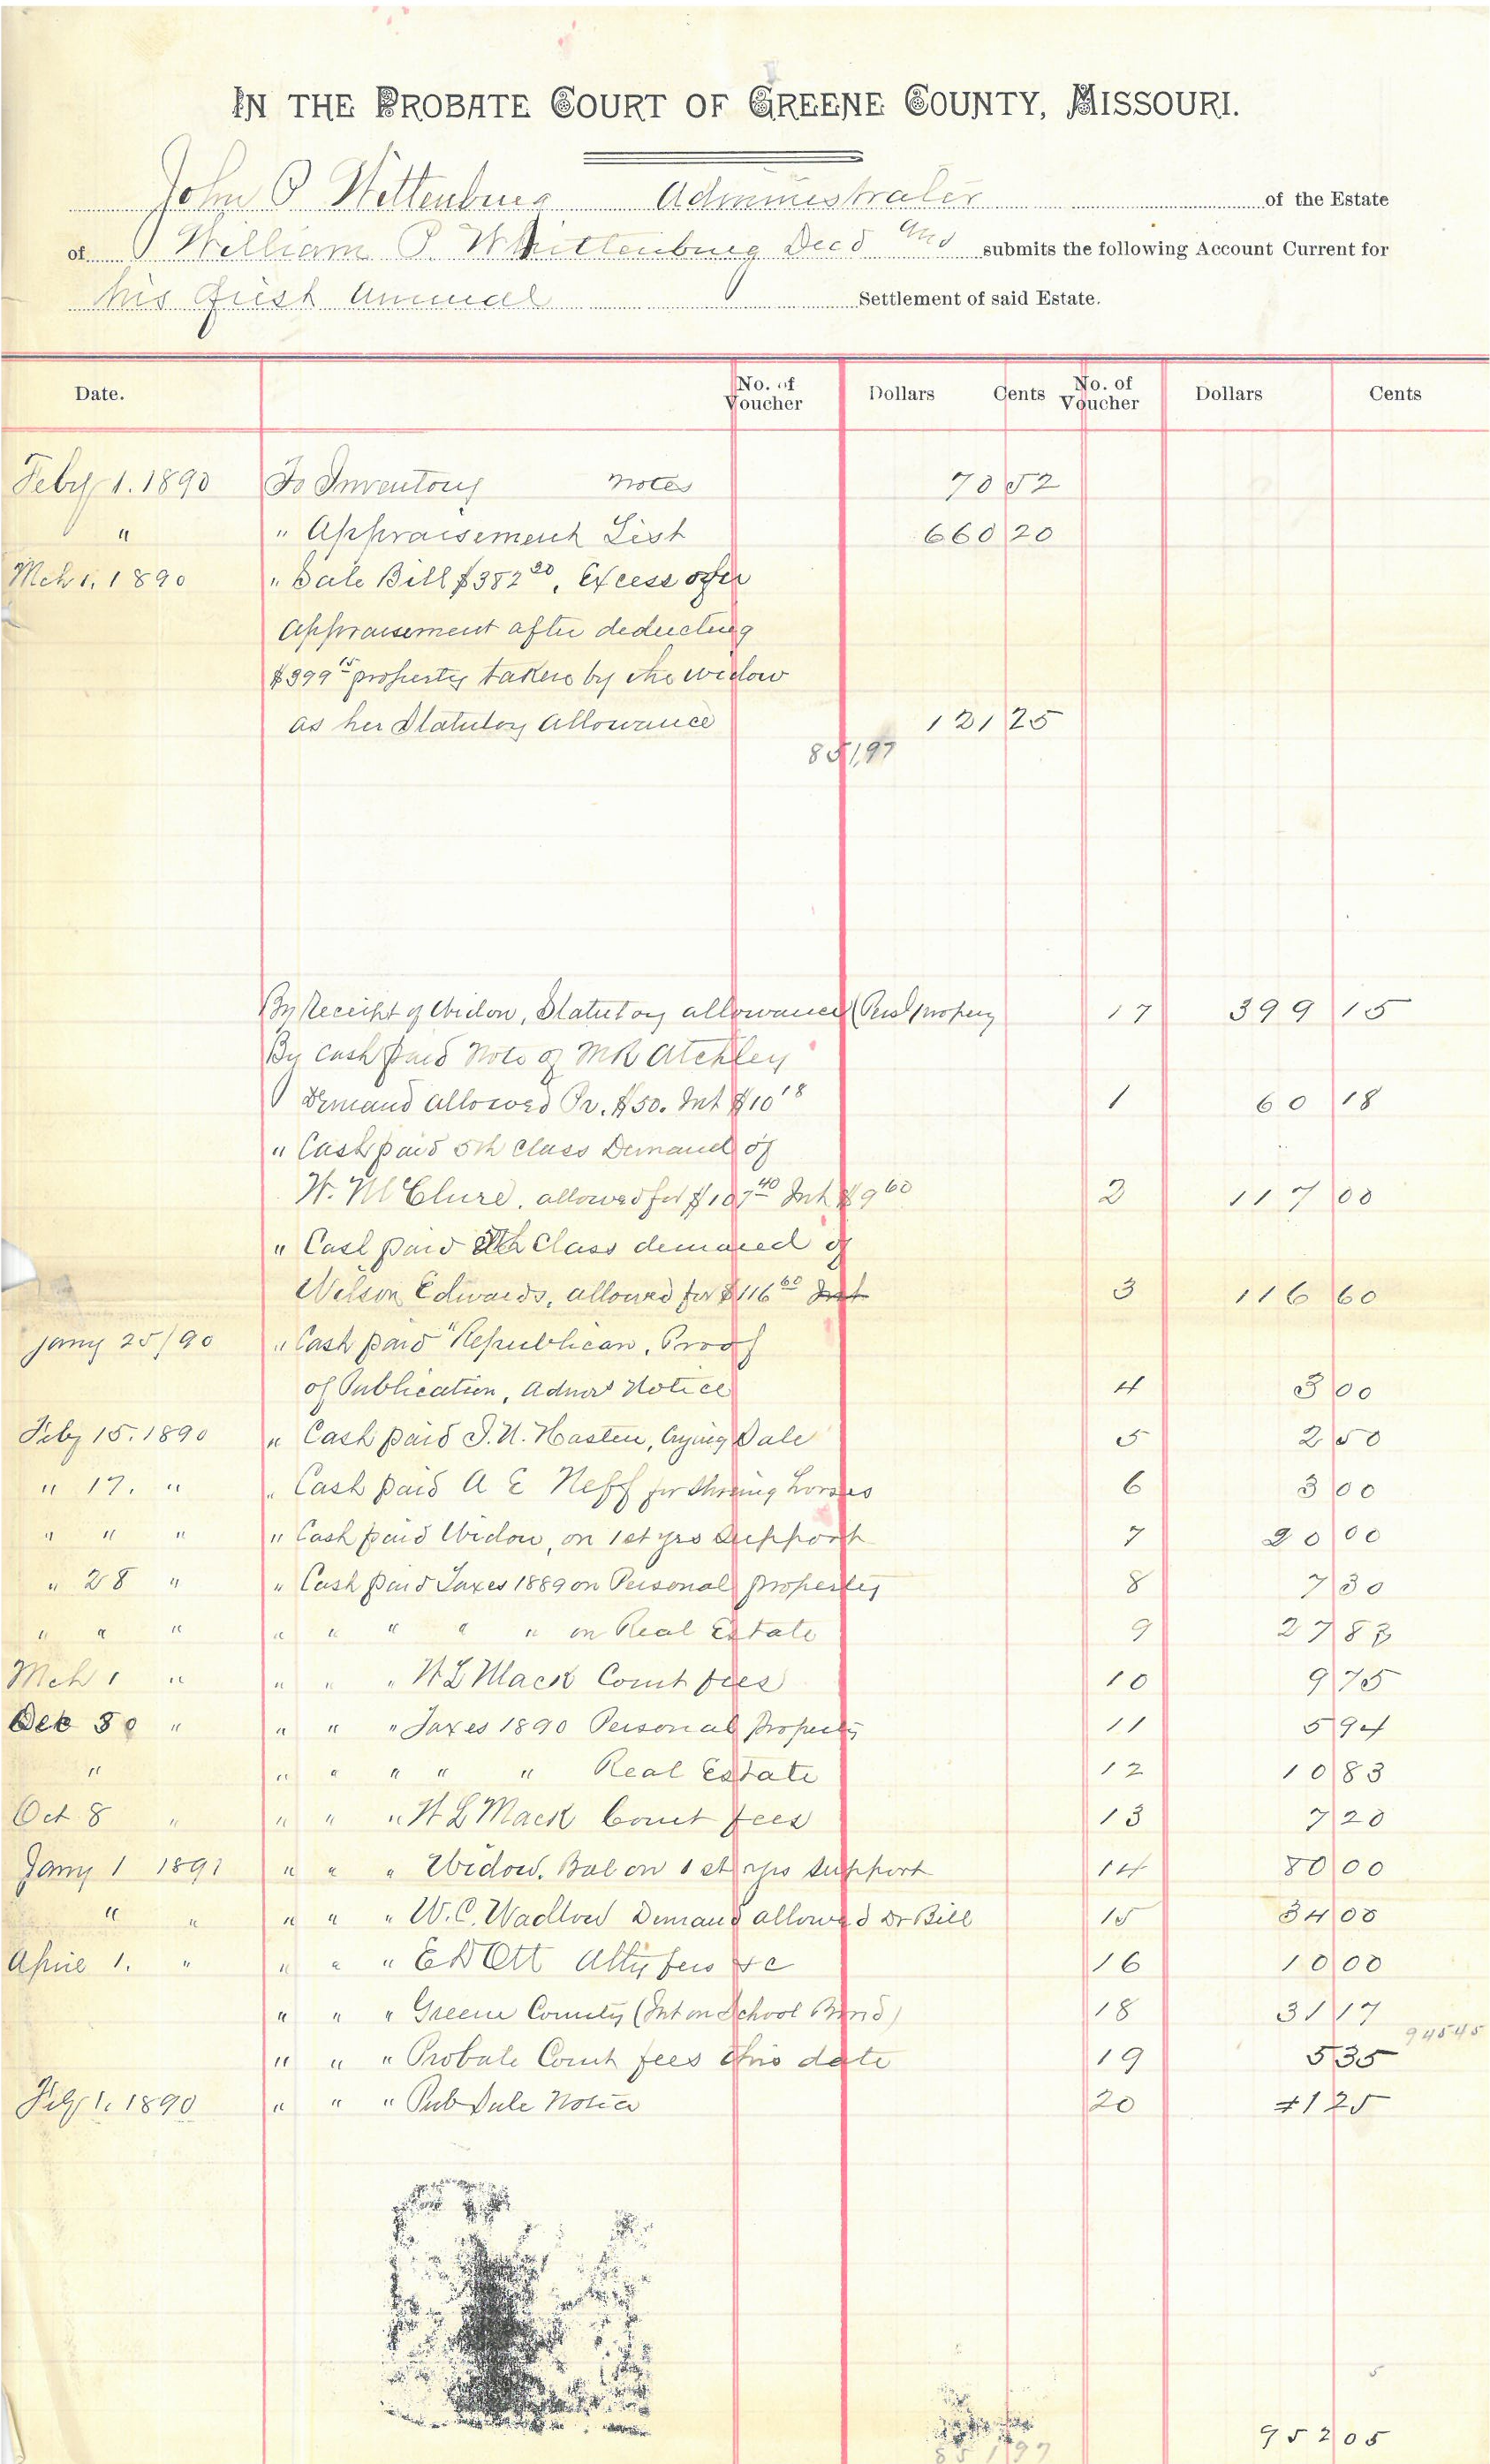 IN THE PROBATE COURT OF GREENE COUNTY, MISSOURI.
John P Wittenburg Administrator of the Estate
of William P. Whittenburg Decd and submits the following Account Current for
his first Annual Settlement of said Estate.
Date. No. of Voucher Dollars Cents No. of Voucher Dollars Cents
Feby 1. 1890 To Inventory notes 70 52
" " Appraisement List 660 20
Mch 1, 1890 " Sale Bill $382 20, Excess over
Appraisement after deducting
$399 15 property taken by the widow
as her Statutory Allowance 121 25
851,97
By Receipt of Widow, Statutory allowance (Persl propery 17 399 15
By Cash paid Note of M R Atchley
Demand allowed Pr. $50. Int $10 18 1 60 18
" Cash paid 5th Class Demand of
W. McClure, allowed for $107 40 Int $9 60 2 117 00
" Cash paid 5th Class demand of
Nelson Edwards, allowed for $116 60 Int 3 116 60
Jany 25/90 " Cash paid "Republican, Proof
of Publication, Admrs Notice 4 3 00
Feby 15. 1890 " Cash paid J. N. Hasten, Crying Sale 5 2 50
" 17. " " Cash paid A E Neff for Shoeing horses 6 3 00
" " " " Cash paid Widow, on 1st yrs Support 7 20 00
" 28 " " Cash paid Taxes 1889 on Personal property 8 7 30
" " " " " " " " on Real Estate 9 27 83
Mch 1 " " " " W L Mack Court fees 10 9 75
Dec 30 " " " " Taxes 1890 Personal Property 11 5 94
" " " " " " Real Estate 12 10 83
Oct 8 " " " " W L Mack Court fees 13 7 20
Jany 1 1891 " " " Widow. Bal on 1st yrs support 14 80 00
" " " " " W. C. Wadlow Demand allowed Dr Bill 15 34 00
April 1. " " " " E D Ott Atty fees &c 16 10 00
" " " Greene County (Int on School Bond) 18 31 17
94545
" " " Probate Court fees this date 19 5 35
Feby 1. 1890 " " " Pub Sale Notice 20 + 1 25
851 97
952 05